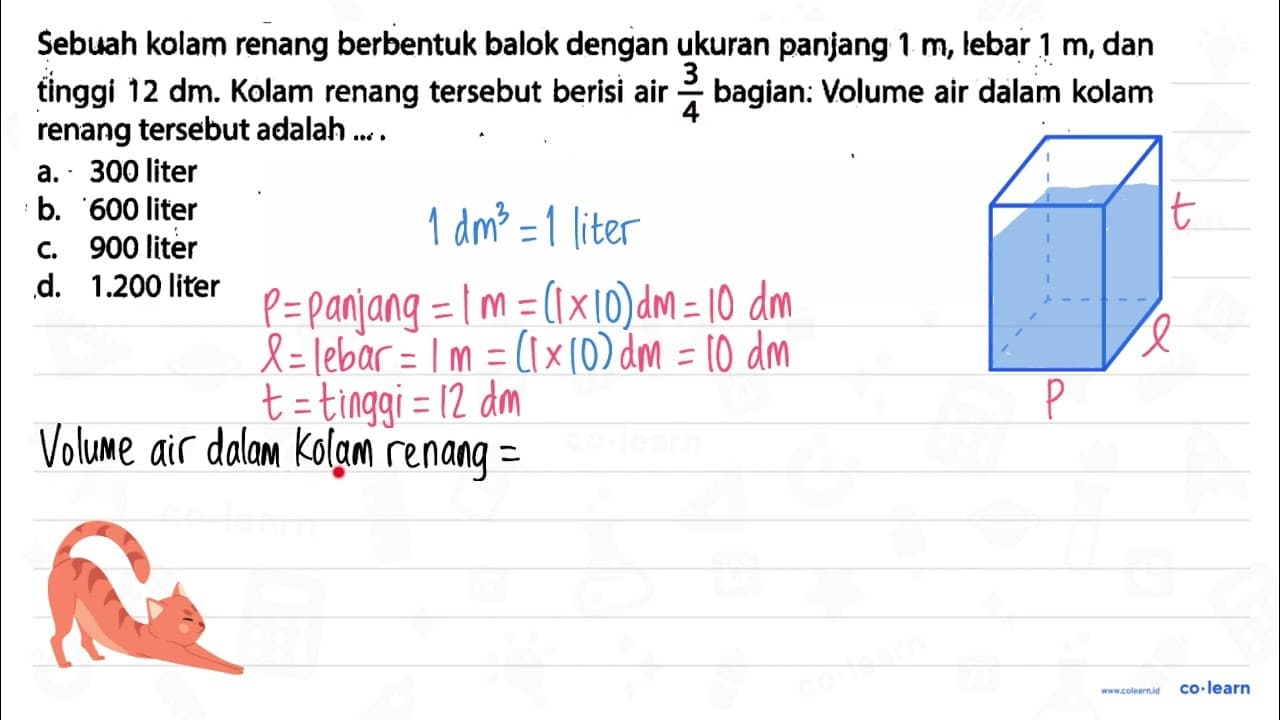 Sebuah kolam renang berbentuk balok dengan ukuran panjang 1 m, lebar 1 m, dan
tinggi 12 dm. Kolam renang tersebut berisi air 3/4 bagian: Volume air dalam kolam
renang tersebut adalah ... .
a. 300 liter
b. 600 liter
c. 900 liter
d. 1.200 liter
1 dm³ = 1 liter
p = panjang = 1 m = (1 × 10) dm = 10 dm
l = lebar = 1 m = (1 × 10) dm = 10 dm
t = tinggi = 12 dm
Volume air dalam kolam renang =
t
l
p
co·learn
co·learn
co·learn
www.colearn.id co·learn